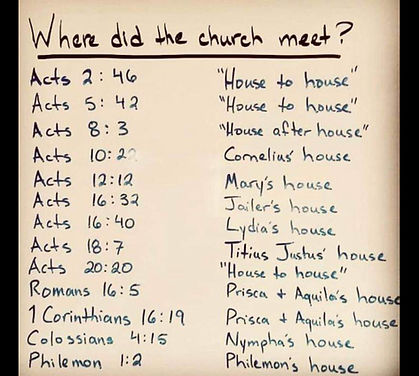 Where did the church meet?
Acts 2:46 "House to house"
Acts 5:42 "House to house"
Acts 8:3 "House after house"
Acts 10:22 Cornelius' house
Acts 12:12 Mary's house
Acts 16:32 Jailer's house
Acts 16:40 Lydia's house
Acts 18:7 Titius Justus' house
Acts 20:20 "House to house"
Romans 16:5 Prisca + Aquila's house
1 Corinthians 16:19 Prisca + Aquila's house
Colossians 4:15 Nympha's house
Philemon 1:2 Philemon's house